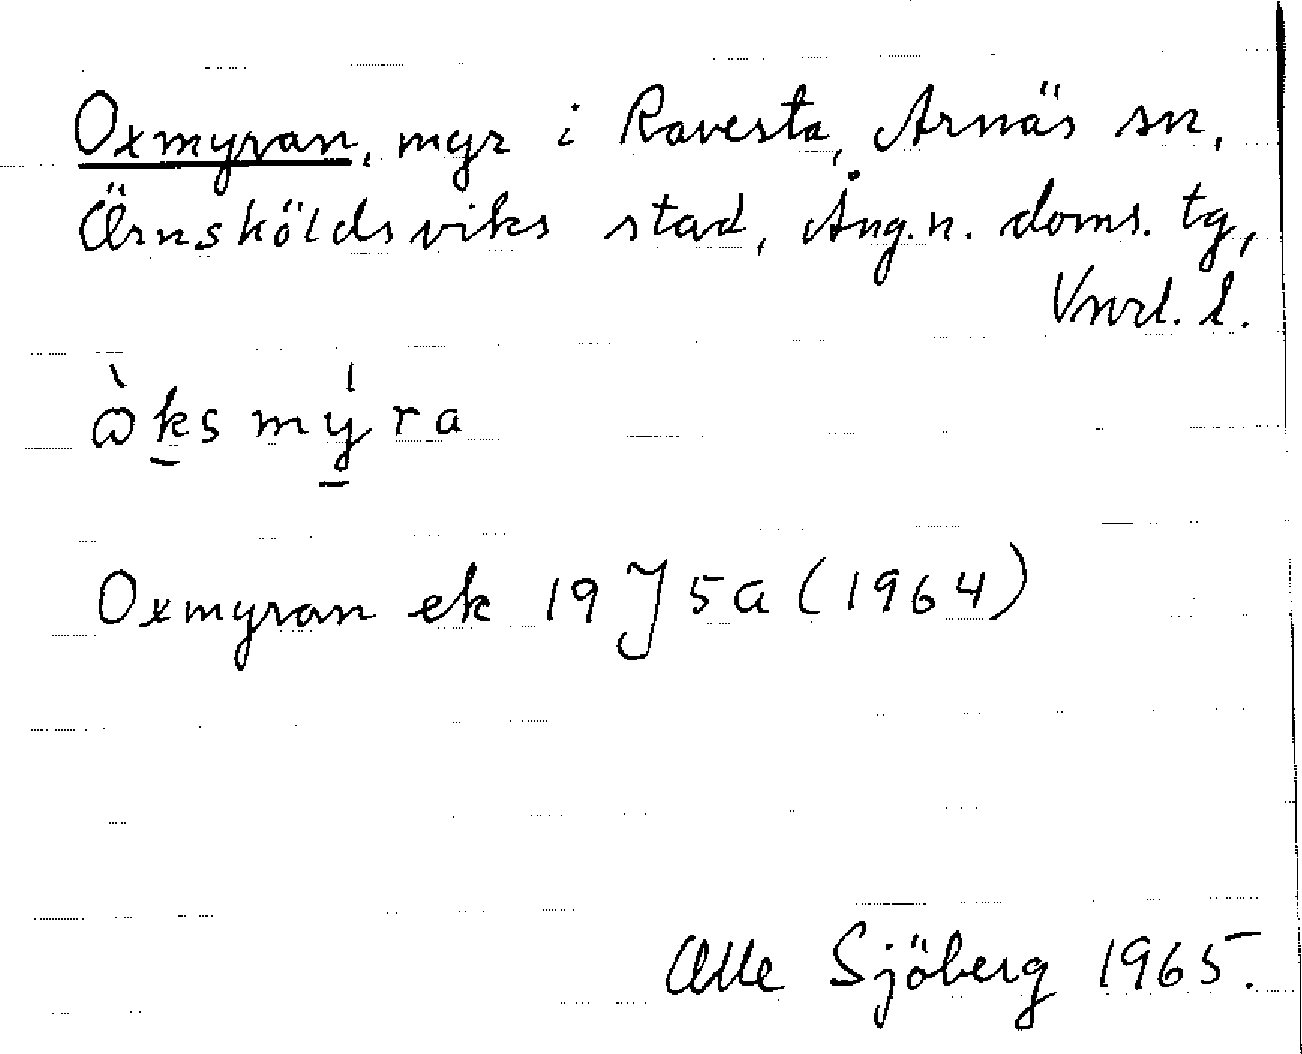 Oxmyran, myr i Ravesta, Arnäs sn,
Örnsköldsviks stad, Ång.n. doms. tg,
Vnrl. l.
ò̱ksmý̱ra
Oxmyran ek 19 J 5a (1964)
Olle Sjöberg 1965.